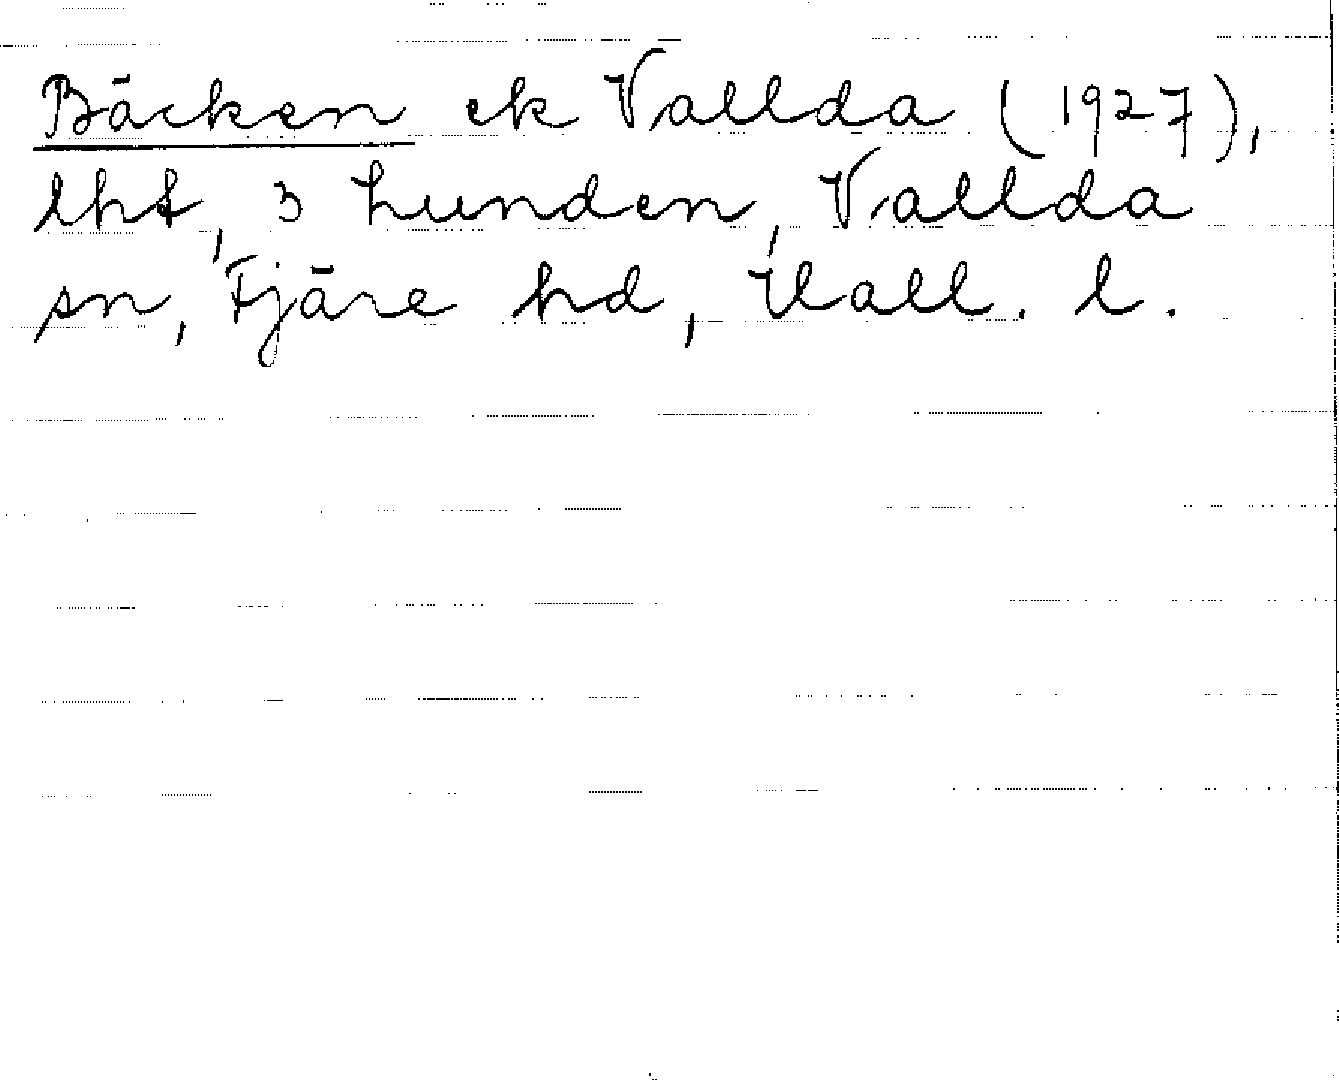 Bäcken ek Vallda (1927),
lht, 3 Lunden, Vallda
sn, Fjäre hd, Hall. l.